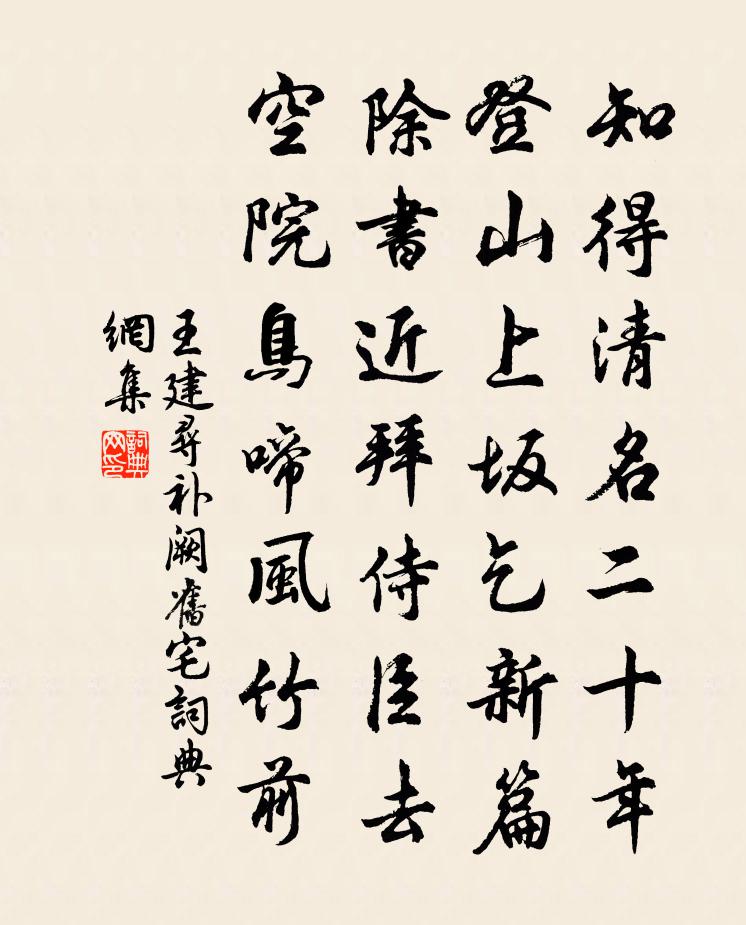 知得清名二十年
登山上坂乞新篇
除書近拜侍臣去
空院鳥啼風竹前
王建尋补阙舊宅詞典
網集
詞典
网印